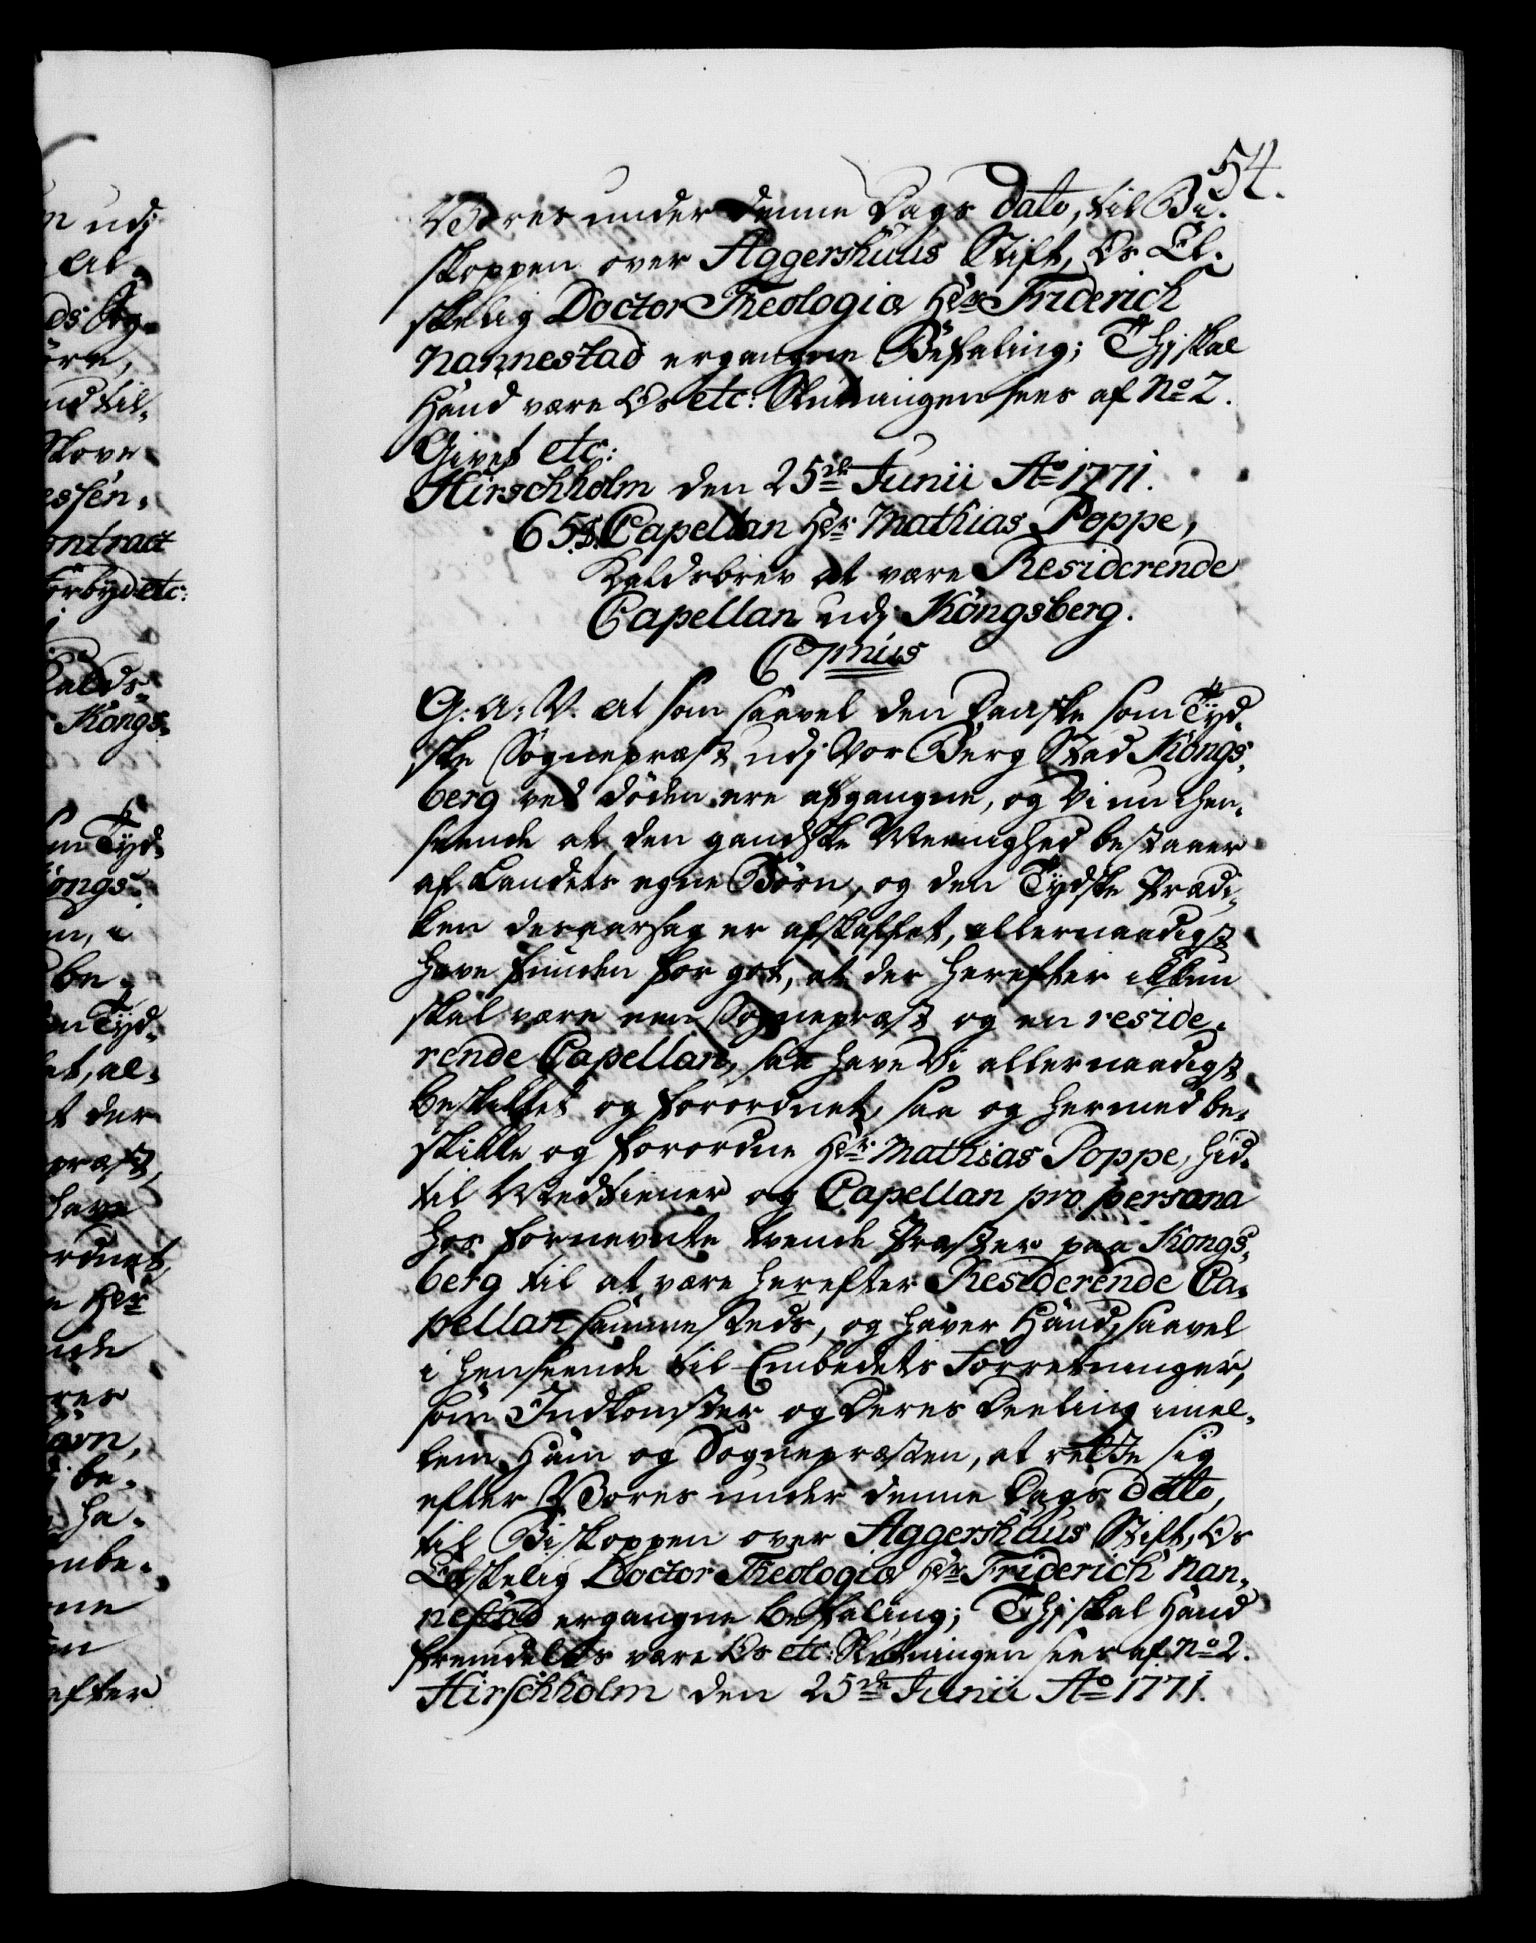 54.
Vores under denne Dags dato, til Bi-
skoppen over Aggershuus Stift, Os El-
skelig Doctor Theologiæ Hr Friderich
Nannestad ergangne Befaling; Thj skal
Hand være Os etc: Slutningen sees af No 2.
Givet etc:
Hirschholm den 25de Junii Ao 1771.
65. Capellan Hr Mathias Poppe,
Kaldsbrev at være Residerende
Capellan udj Kongsberg.
C 7mus
G: A: V. at som saavel den Danske som Tyd-
ske Sognepræst, udj Vor Berg Stad Kongs-
berg ved døden ere afgangne, og Vi nu hen-
seende at den gandske Meenighed bestaaer
af Landets egne Børn, og den Tydske Prædi-
ken deraarsag er afskaffet, allernaadigst
have funden for got, at der herefter ikkun
skal være een Sognepræst og en reside-
rende Capellan, saa have Vi allernaadigst
beskikket og forordnet, saa og hermed be-
skikke og forordne Hr Mathias Poppe, hid-
til Medtiener og Capellan pro persona
hos fornevnte tvende Præster paa Kongs-
berg til at være herefter Residerende Ca-
pellan sammesteds, og haver Hand, saavel
i henseende til Embedets Forretninger,
som Indkomster og deres Deeling imel-
lem Ham og Sognepræsten, at rette sig
efter Vores under denne Dags dato,
til Biskoppen over Aggershuus Stift, Os
Elskelig Doctor Theologiæ Hr Friderich Nan-
nestad ergangne befaling; Thj skal Hand
fremdeles være Os etc: Slutningen sees af No 2.
Hirschholm den 25de Junii Ao 1771.